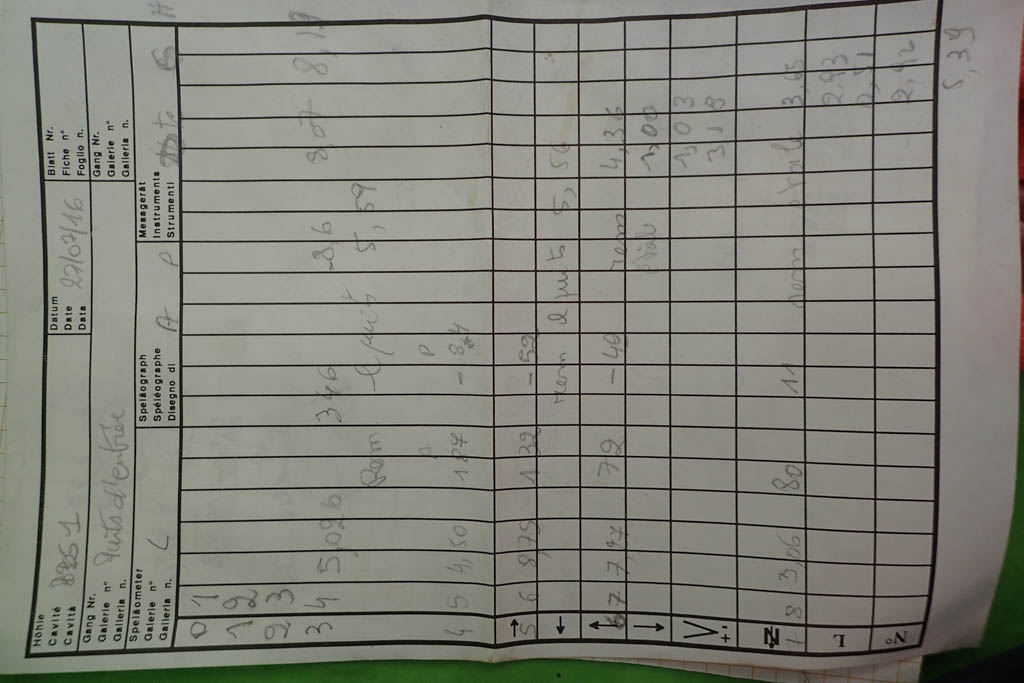 Höhle
Cavité
Cavità
Datum
Date 27/07/16
Data
Blatt Nr.
Fiche n°
Foglio n.
Gang Nr.
Galerie n° Puits d'entrée
Galleria n.
Gang Nr.
Galerie n°
Galleria n.
Speläometer
Galerie n° L
Galleria n.
Speläograph
Spéléographe A
Disegno di
P
Messgerät
Instruments
Strumenti
0 1
1 2
2 3 8,07 8,19
3 4 5,026 346 -8,6
Rem 5,59
A P
4 5 4,50 187
5 6 8,75 132 -52
rem 2 puits 5,56
6 7 7,77 72 -40 rem 4,36
1,00
1,03
3,8
7 8 3,06 80 11 rem 3,65
2,93
2,92
5,39